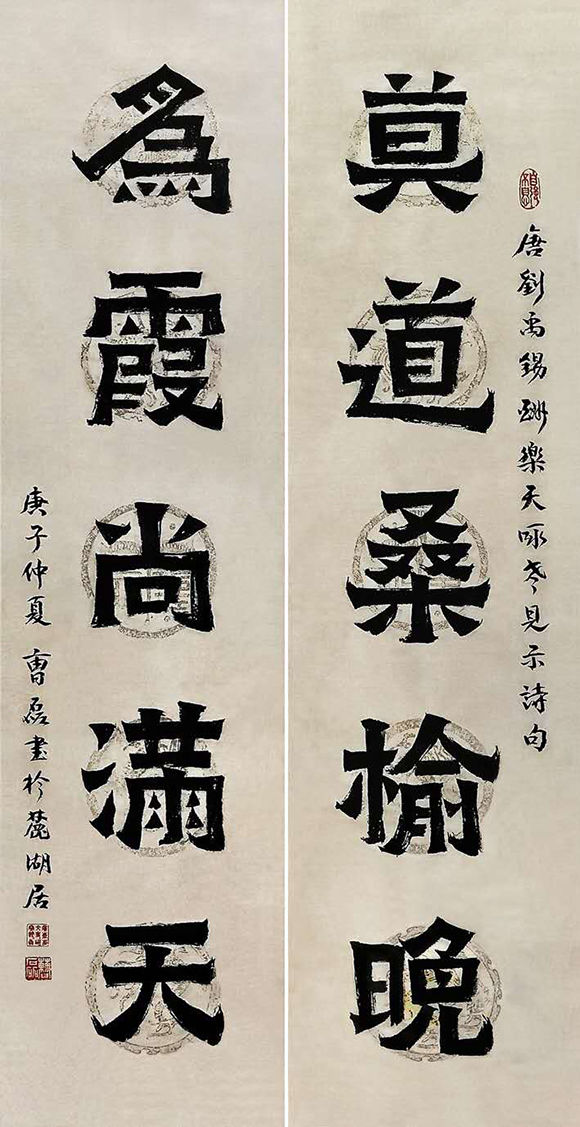 莫道桑榆晚
唐劉禹錫酬樂天咏老見示詩句
為霞尚滿天
庚子仲夏 曹磊書於麓湖居